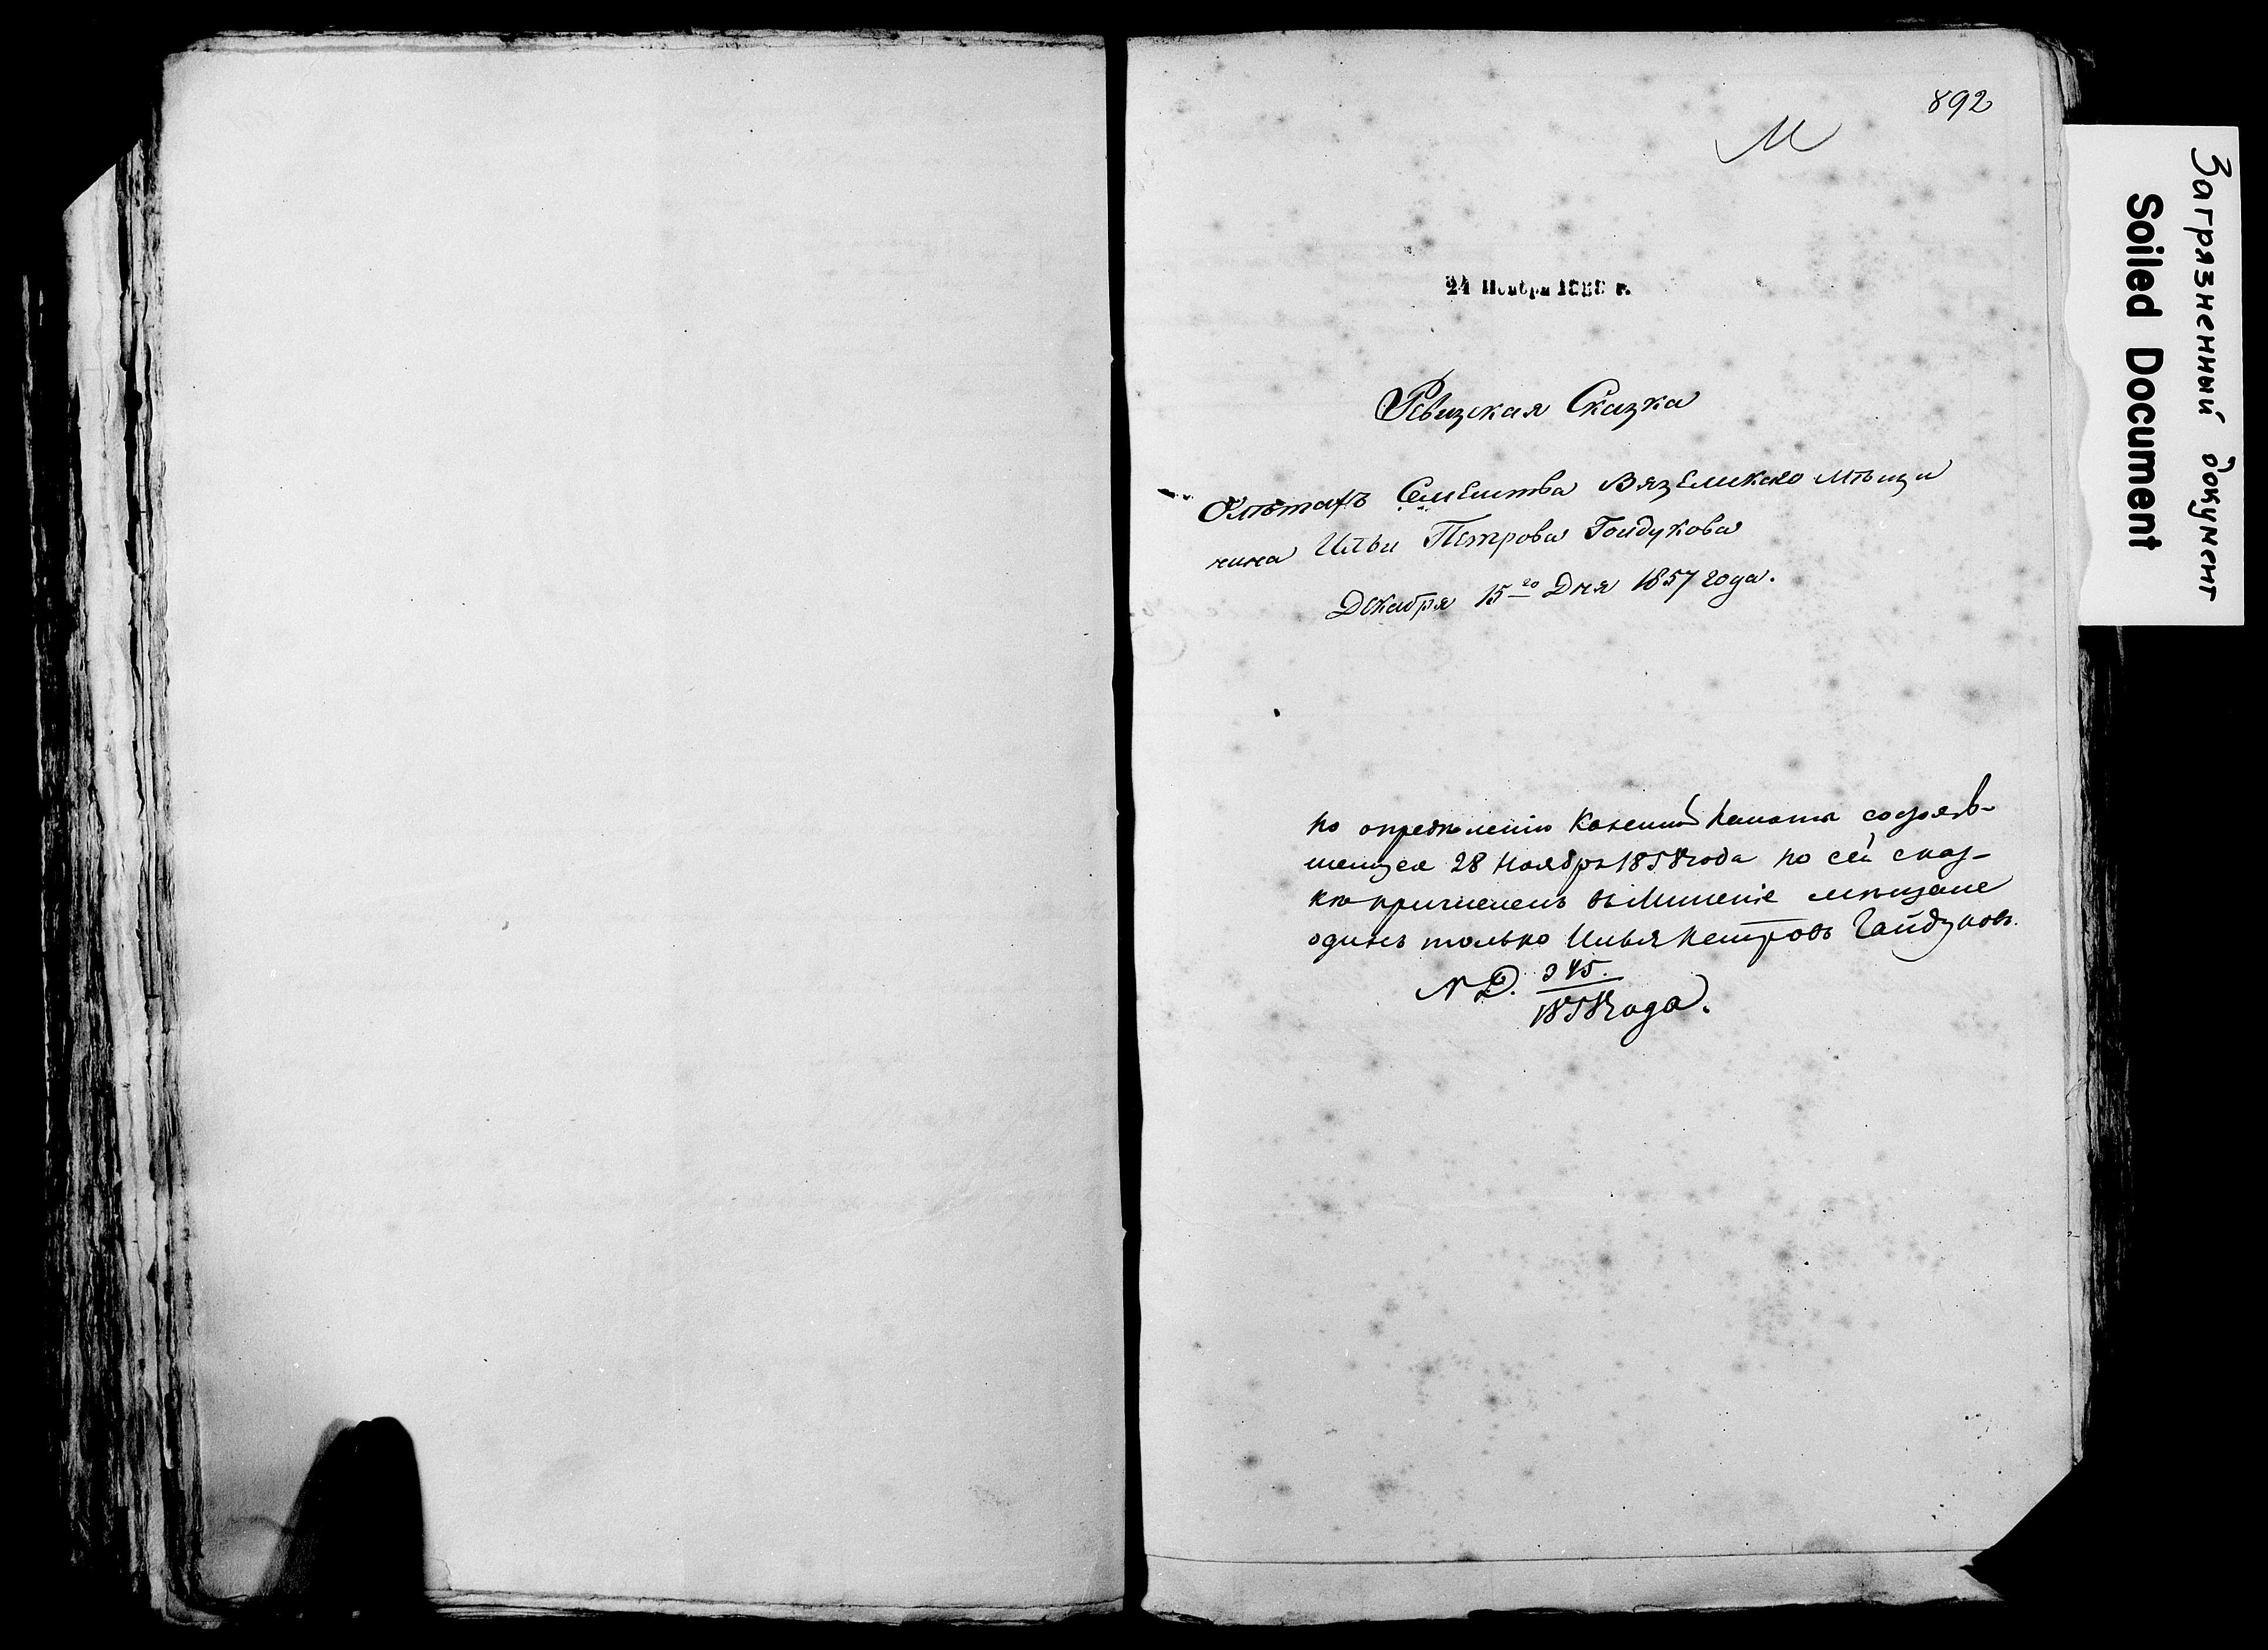 892
М
24 Ноября 1888 г.
Ревизская Сказка
Семейства Вяземскаго мѣща
нина Ильи Петрова Гойдукова
Декабря 15го Дня 1857 года.
по опредѣленію Казенной Палаты состояв-
шемуся 28 Ноября 1858 года по сей сказ-
кѣ причисленъ въ мещане
одинъ только Илья Петровъ Гайдуковъ.
№ Д. 345.
1858 года.
Загрязненный документ
Soiled Document